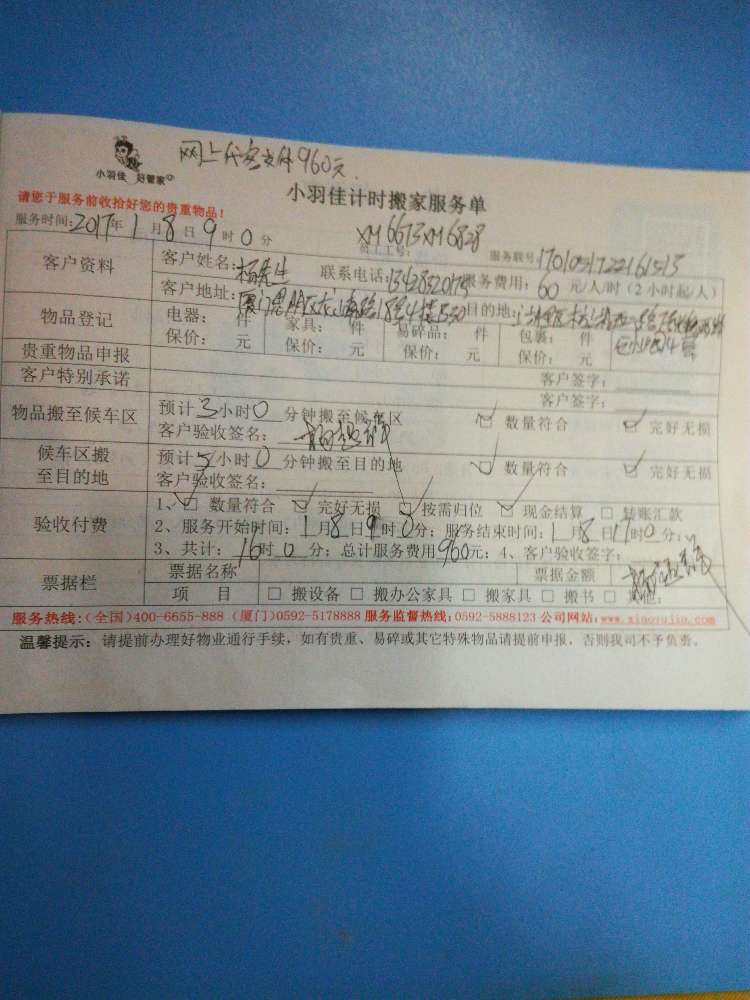 网上代客支付960元.
小羽佳 好管家
小羽佳计时搬家服务单
请您于服务前收拾好您的贵重物品!
服务时间: 2017年1月8日9时0分 员工工号: XM6613 XM6828 服务联号
客户资料 客户姓名: 杨先生 联系电话: 服务费用: 60 元/人/时(2小时起/人)
客户地址: 目的地:
物品登记 电器: 件 家具: 件 易碎品: 件 包裹: 件
保价: 元 保价: 元 保价: 元 保价: 元
贵重物品申报 客户签字:
客户特别承诺 客户签字:
物品搬至候车区 预计3小时0分钟搬至候车区 数量符合 完好无损
客户验收签名:
候车区搬至目的地 预计5小时0分钟搬至目的地 数量符合 完好无损
客户验收签名:
验收付费 1、 数量符合 完好无损 按需归位 现金结算 转账汇款
2、服务开始时间: 1月8日9时0分; 服务结束时间: 1月8日17时0分;
3、共计: 16时0分; 总计服务费用960元; 4、客户验收签字:
票据栏 票据名称 票据金额
项 目 搬设备 搬办公家具 搬家具 搬书 其他:
服务热线:(全国)400-6655-888 (厦门)0592-5178888 服务监督热线:0592-5888123 公司网站:www.xiaoyujia.com
温馨提示: 请提前办理好物业通行手续, 如有贵重、易碎或其它特殊物品请提前申报, 否则我司不予负责。